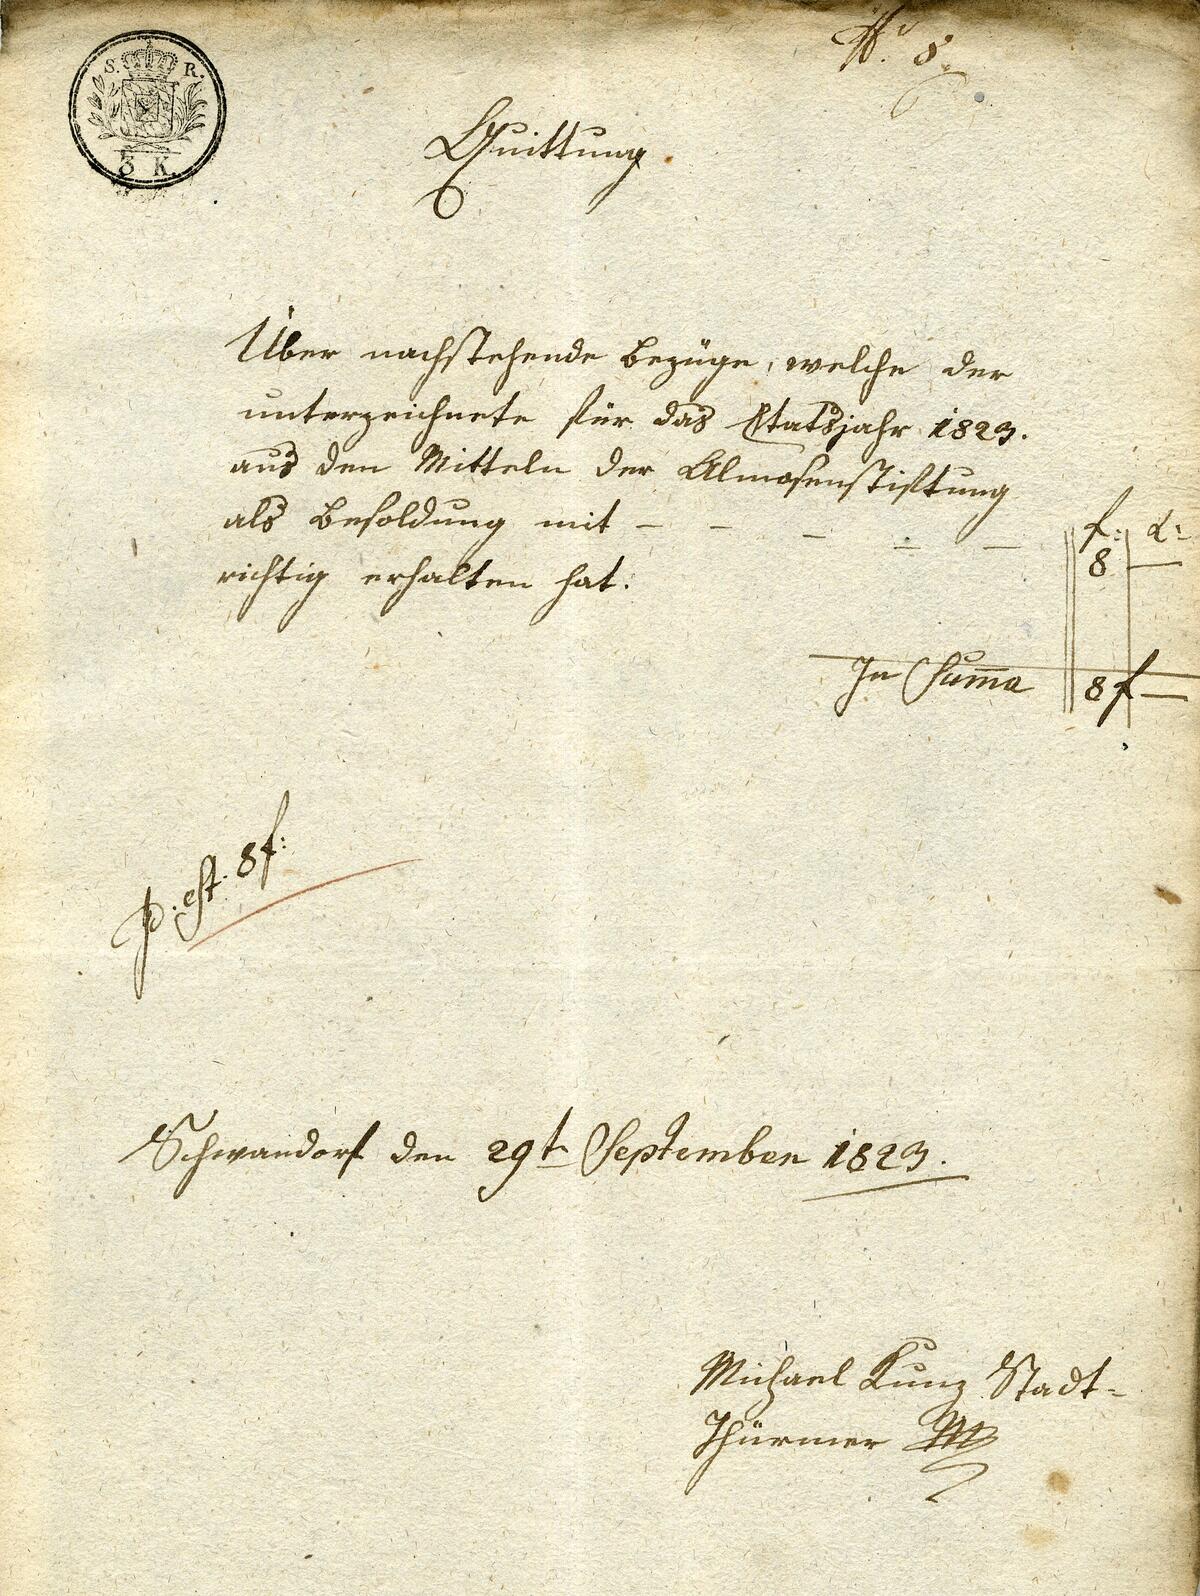 S. R.
3 K.
No. 8.
Quittung.
Über nachstehende Bezüge, welche der
unterzeichnete für das Etatsjahr 1823.
aus den Mitteln der Almosenstiftung
als Besoldung mit – – – – –
f: d:
8 —
richtig erhalten hat.
In Sum̅a 8 f —
p. est. 8 f:
Schwandorf den 29t September 1823.
Michael Kunz Stadt-
Thürmer